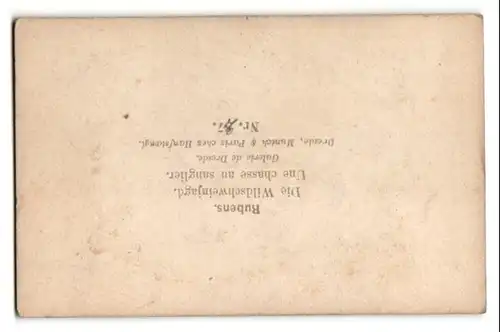 Rubens.
Die Wildschweinjagd.
Une chasse au sanglier.
Galerie de Dresde.
Dresde, Munich & Paris chez Hanfstaengl.
Nr.